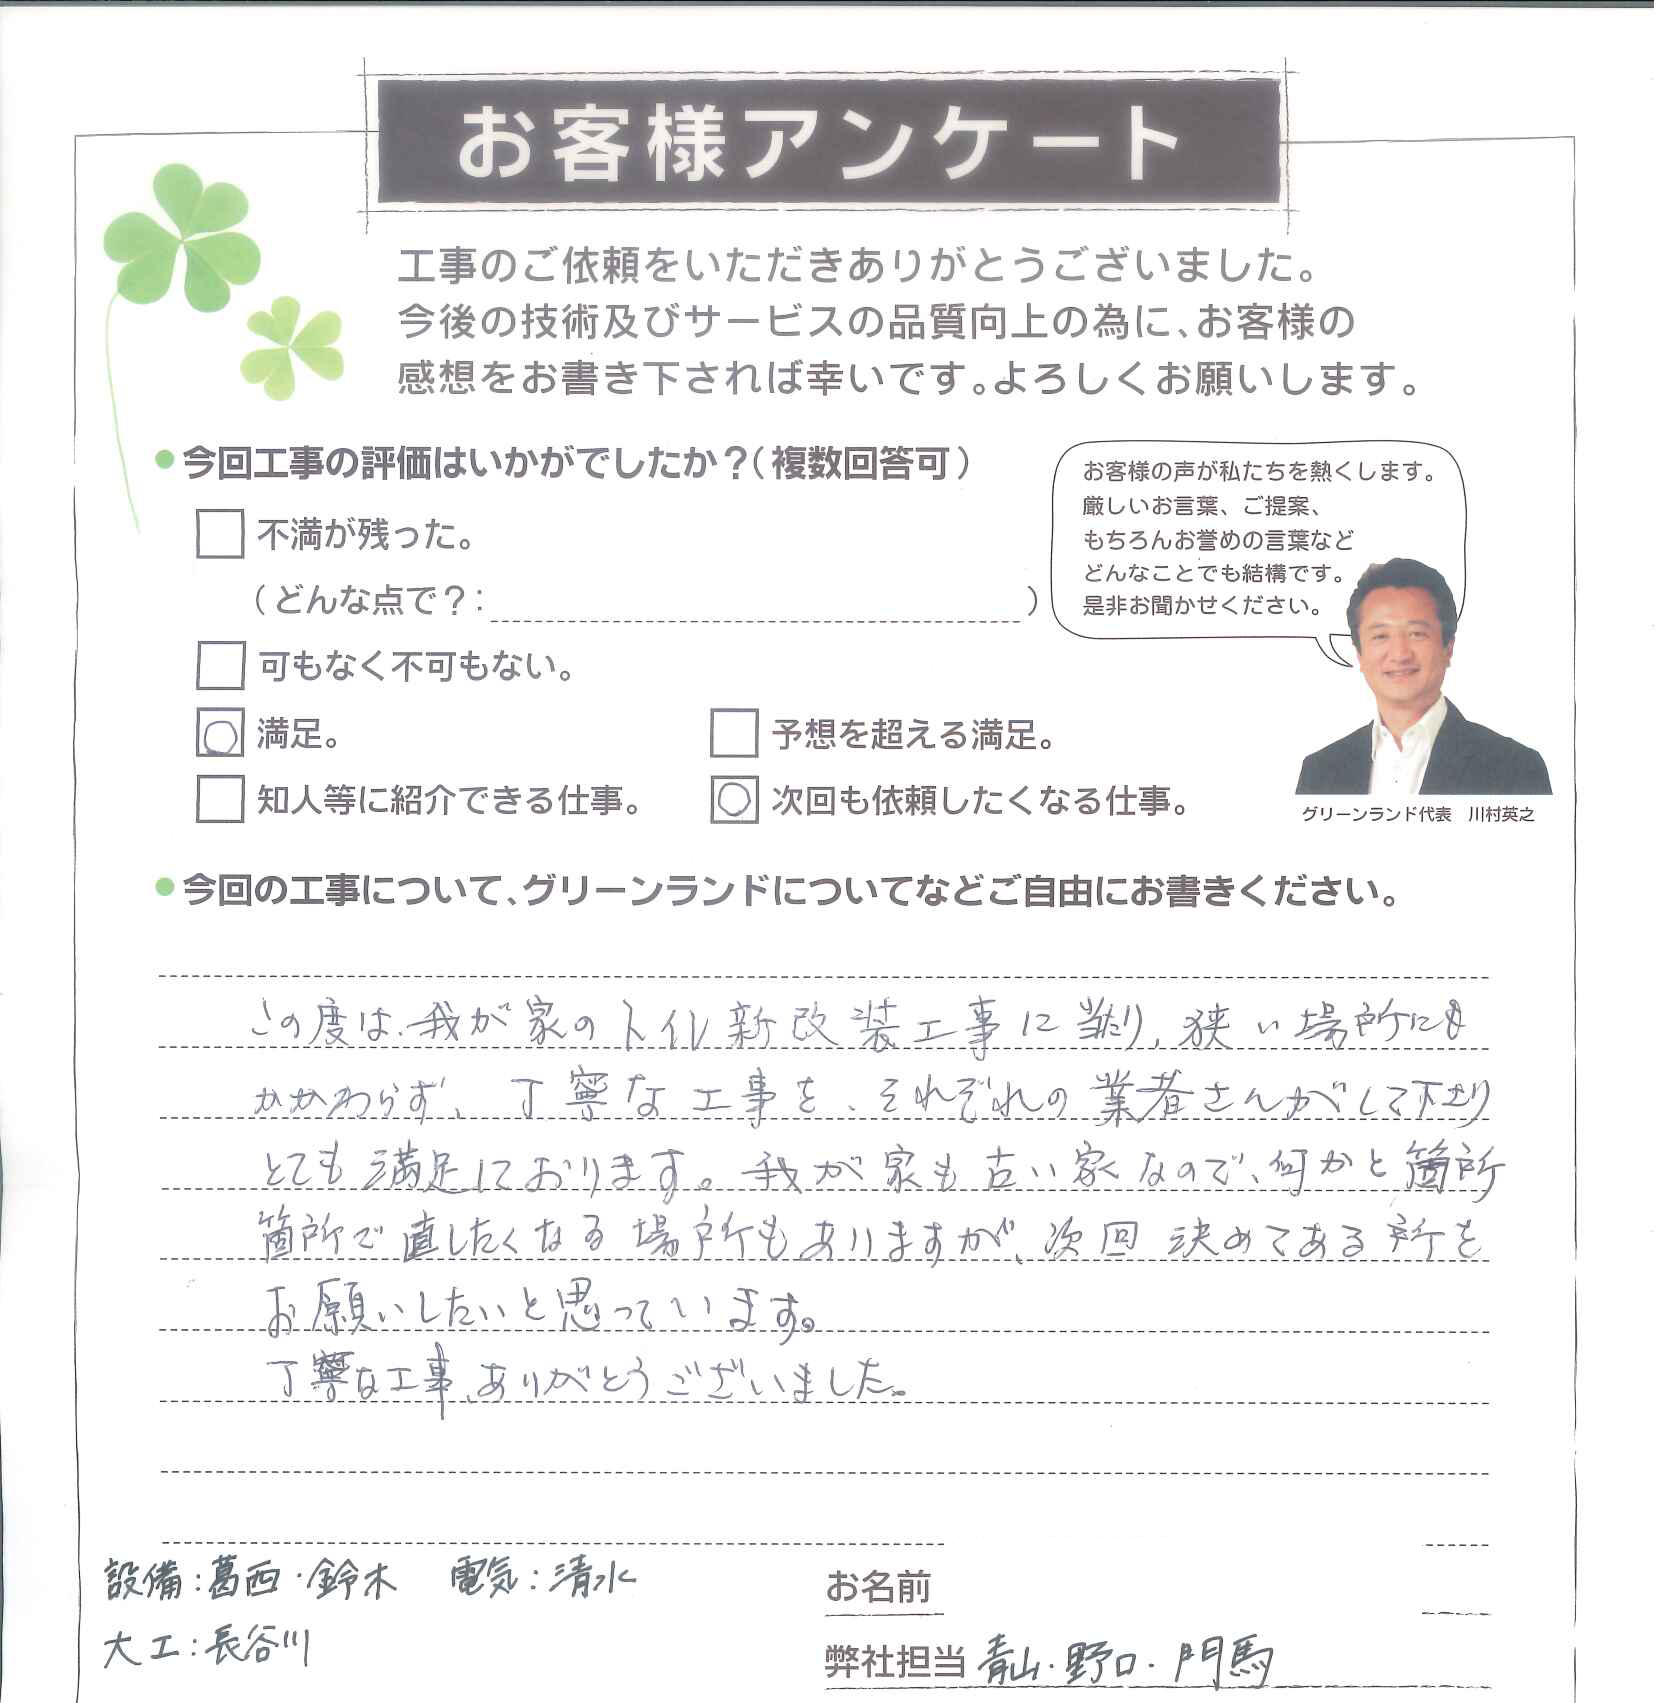 お客様アンケート
工事のご依頼をいただきありがとうございました。
今後の技術及びサービスの品質向上の為に、お客様の
感想をお書き下されば幸いです。よろしくお願いします。
●今回工事の評価はいかがでしたか？（複数回答可）
不満が残った。
（どんな点で？：　　　　　）
可もなく不可もない。
○ 満足。
予想を超える満足。
知人等に紹介できる仕事。
○ 次回も依頼したくなる仕事。
お客様の声が私たちを熱くします。
厳しいお言葉、ご提案、
もちろんお誉めの言葉など
どんなことでも結構です。
是非お聞かせください。
グリーンランド代表　川村英之
●今回の工事について、グリーンランドについてなどご自由にお書きください。
この度は、我が家のトイレ新改装工事に当たり、狭い場所にも
かかわらず、丁寧な工事を、それぞれの業者さんがして下さり
とても満足しております。我が家も古い家なので、何かと箇所
箇所で直したくなる場所もありますが、次回決めてある所を
お願いしたいと思っています。
丁寧な工事、ありがとうございました。
設備：葛西・鈴木　電気：清水
大工：長谷川
お名前
弊社担当 青山・野口・門馬